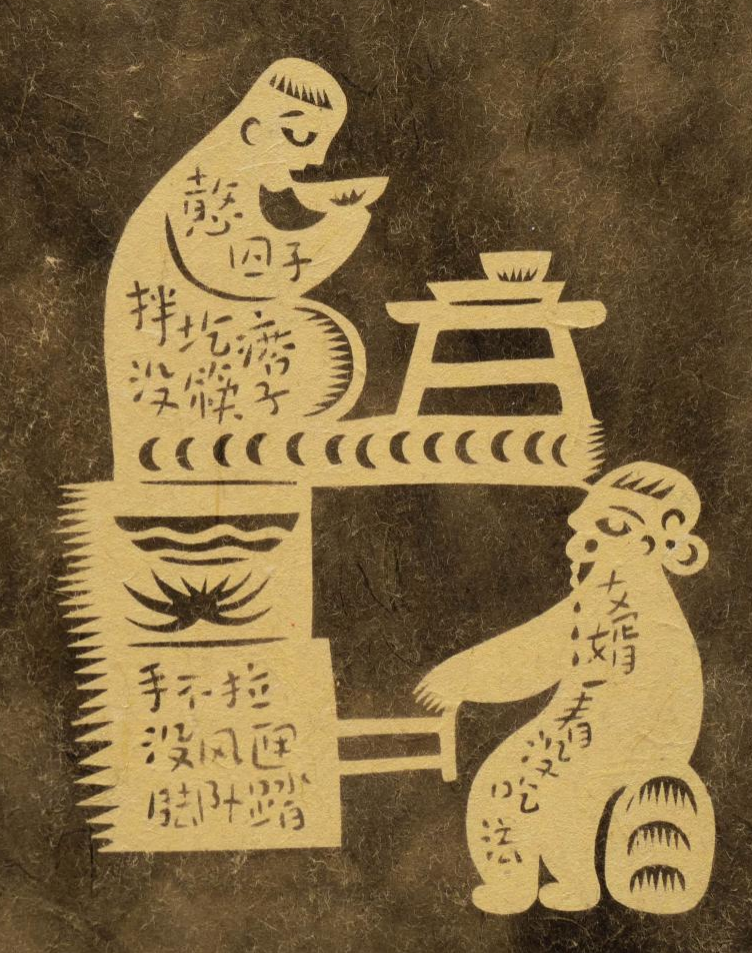 憨
子
拌圪
没筷子
手不拉
没风匣
踏
女婿
一看
没吃
法